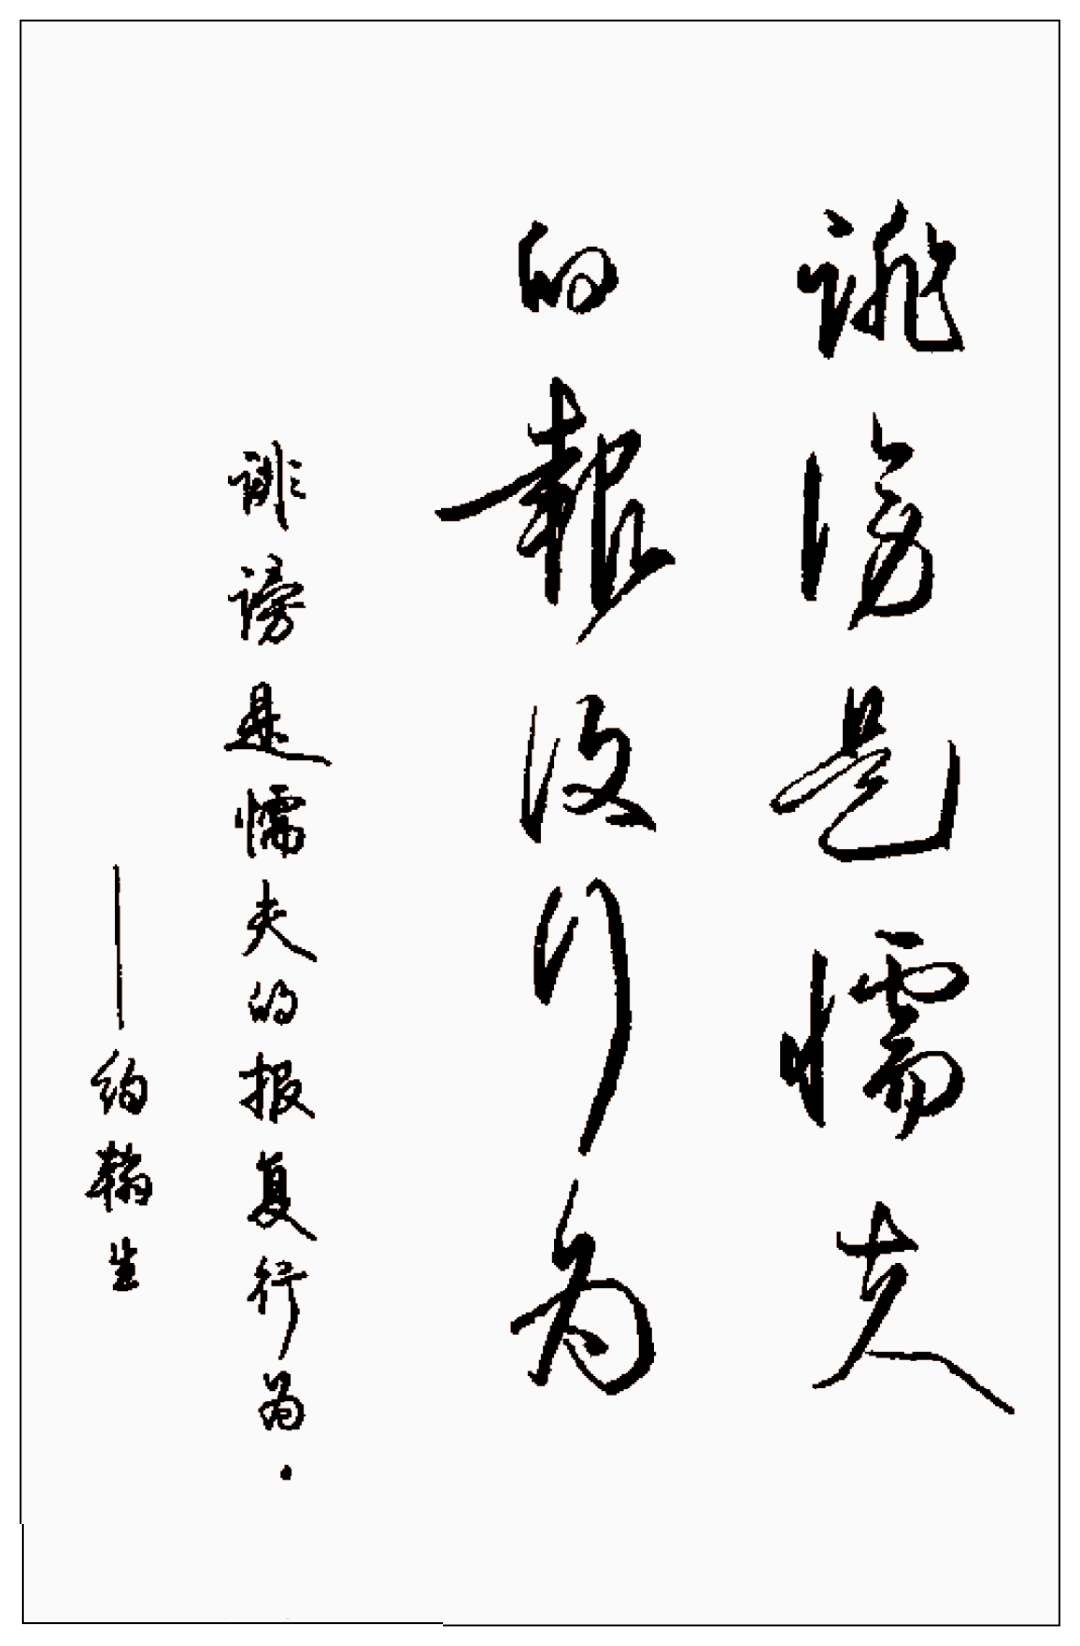 誹謗是懦夫
的報復行为
诽谤是懦夫的报复行为.
——约翰生